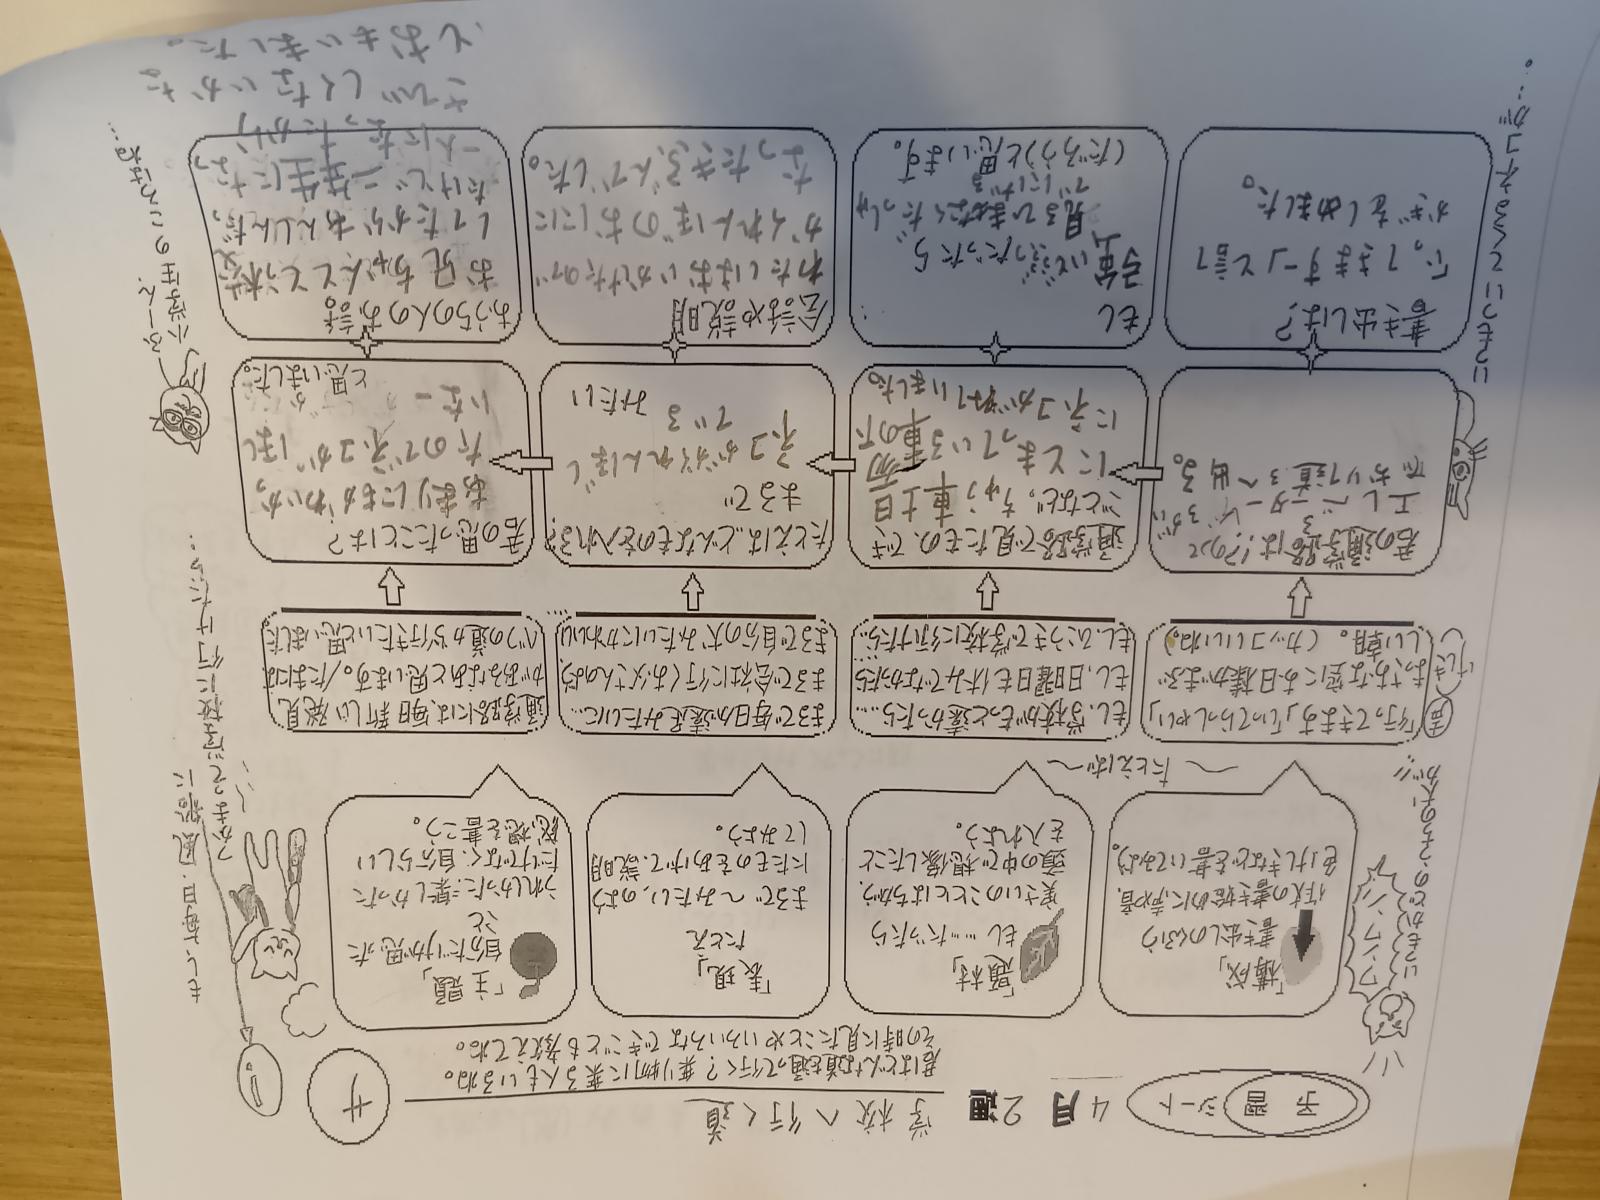 予習シート
4月2週
学校へ行く道
サ
君はどんな道を通って行く?乗り物に乗る人もいるね。
その時に見たことやいろいろなできごとも教えてね。
「構成」
書き出しのくふう
作文の書き始めに、声や音、
色、けしきなどを書いてみよう。
「題材」
もし…だったら
実さいのこととはちがう、
頭の中で想像したこと
を入れよう。
「表現」
たとえ
まるで〜みたい、のよう
にたものをあげて、説明
してみよう。
「主題」
自分だけが思った
こと
うれしかった、楽しかった
だけでなく、自分らしい
感想を書こう。
〜たとえば〜
声
けしき
「行ってきます」「いってらっしゃい」
まっさおな空にお日様がまぶ
しい朝。(カッコいいね。)
もし、学校がもっと遠かったら……
もし、日曜日も休みでなかったら…
もし、ひこうきで学校に行けたら…
まるで毎日が遠足みたいに…
まるで会社に行くお父さんのよう…
まるで自分の犬みたいにかわいい…
通学路には、毎日新しい発見
があるなあと思います。/たまには
べつの道から行きたいと思いました
君の通学路は!?のって
エレベーターでおりて道ろへ出る。
通学路で見たもの、でき
ごとなど。
ちゅう車
にとまっている車の下
にネコがねていました。
たとえば…どんなものを入れる?
まるで
ネコがかくれんぼし
ている
みたい
君の思ったことは?
あまりにもかわいかっ
たのでネコがほし
いなー
と思いました。
書き出しは?
「いってきますー」と言って
かぎをしめました。
もし
(だろう)と思います。
会話や説明
わたしはおいかけたので
かくれんぼのおにに
なったきぶんでした。
おうちの人のお話。
お兄ちゃんとと校
してたからあんしんだっ
たけど二年生になって
一人になったから、
さびしくないかな
とおもいました。
いつもかどのうちの犬が!!
ワンワン
いつもよくついてくるネコが…。
もし、毎日、風船に
つかまって学校に行けたら…
小学生のころはね…
ふーん。